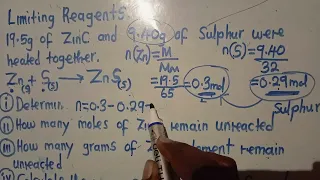 Limiting Reagents
19.5g of Zinc and 9.40g of Sulphur were
heated together.
n(Zn) = M/Mm
= 19.5/65
= 0.3mol
n(S) = 9.40/32
= 0.29mol
Zn(s) + S(s) → ZnS(s)
(i) Determin n=0.3-0.29
Sulphur
(ii) How many moles of Z remain unreacted
(iii) How many grams of element remain
unreacted
(iv) Calculate the